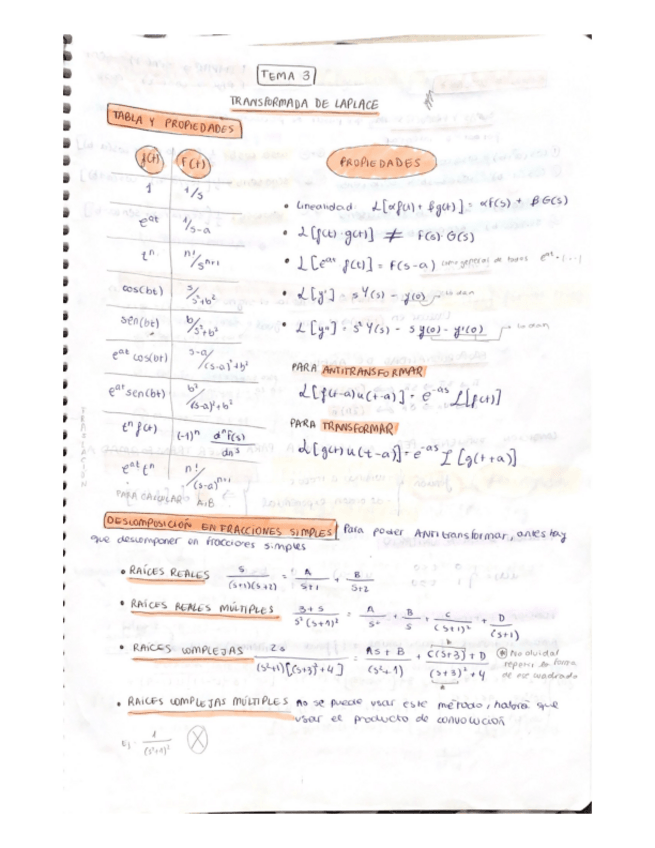 TEMA 3
TRANSFORMADA DE LAPLACE
TABLA Y PROPIEDADES
f(t) F(t)
1 1/s
e^at 1/s-a
t^n n!/s^n+1
cos(bt) s/s²+b²
sen(bt) b/s²+b²
e^at cos(bt) s-a/(s-a)²+b²
e^at sen(bt) b²/(s-a)²+b²
t^n f(t) (-1)^n d^n F(s)/ds^n
e^at t^n n!/(s-a)^n+1
TRASLACION
PARA CALCULAR A,B
PROPIEDADES
• Linealidad L[αf(t) + βg(t)] = αF(s) + βG(s)
• L[f(t)·g(t)] ≠ F(s)·G(s)
• L[e^at f(t)] = F(s-a) como general de todos e^at·(...)
• L[y'] = sY(s) - y(0) → lo dan
• L[y''] = s²Y(s) - sy(0) - y'(0) → lo dan
PARA ANTITRANSFORMAR
L[f(t-a)u(t-a)] = e^-as L[f(t)]
PARA TRANSFORMAR
L[g(t)u(t-a)] = e^-as L[g(t+a)]
DESCOMPOSICIÓN EN FRACCIONES SIMPLES Para poder ANTItransformar, antes hay
que descomponer en fracciones simples
• RAÍCES REALES s/(s+1)(s+2) = A/s+1 + B/s+2
• RAÍCES REALES MÚLTIPLES 3+s/s²(s+1)² = A/s² + B/s + C/(s+1)² + D/(s+1)
• RAICES COMPLEJAS 2s/(s²+1)[(s+3)²+4] = As+B/(s²+1) + C(s+3)+D/(s+3)²+4 No olvidar
repetir la forma
de ese cuadrado
• RAICES COMPLEJAS MÚLTIPLES no se puede usar este método, habrá que
usar el producto de convolución
Ej: 1/(s²+1)²